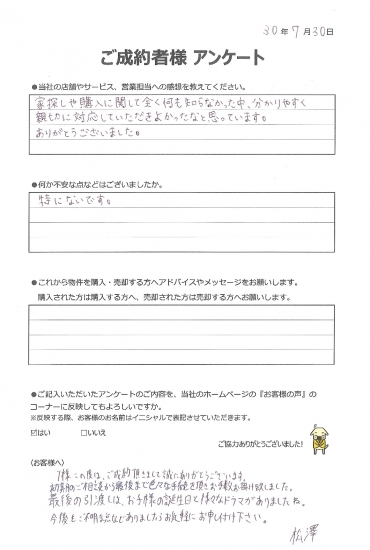 30年7月30日
ご成約者様 アンケート
●当社の店舗やサービス、営業担当への感想を教えてください。
家探しや購入に関して全く何も知らなかった中、分かりやすく
親切に対応していただきよかったなと思っています。
ありがとうございました。
●何か不安な点などはございましたか。
特にないです。
●これから物件を購入・売却する方へアドバイスやメッセージをお願いします。
購入された方は購入する方へ、売却された方は売却する方へお願いします。
●ご記入いただいたアンケートのご内容を、当社のホームページの『お客様の声』の
コーナーに反映してもよろしいですか。
※反映する際、お客様のお名前はイニシャルで表記させていただきます。
☑はい □いいえ
ご協力ありがとうございました!
(お客様へ)
様 この度は、ご成約頂きまして誠にありがとうございます。
初期のご相談から最後まで色々な手続を頂きお手数お掛け致しました。
最後の引渡しは、お子様の誕生日と様々なドラマがありましたね。
今後もご不明な点などありましたらお気軽にお申し付け下さい。
松澤